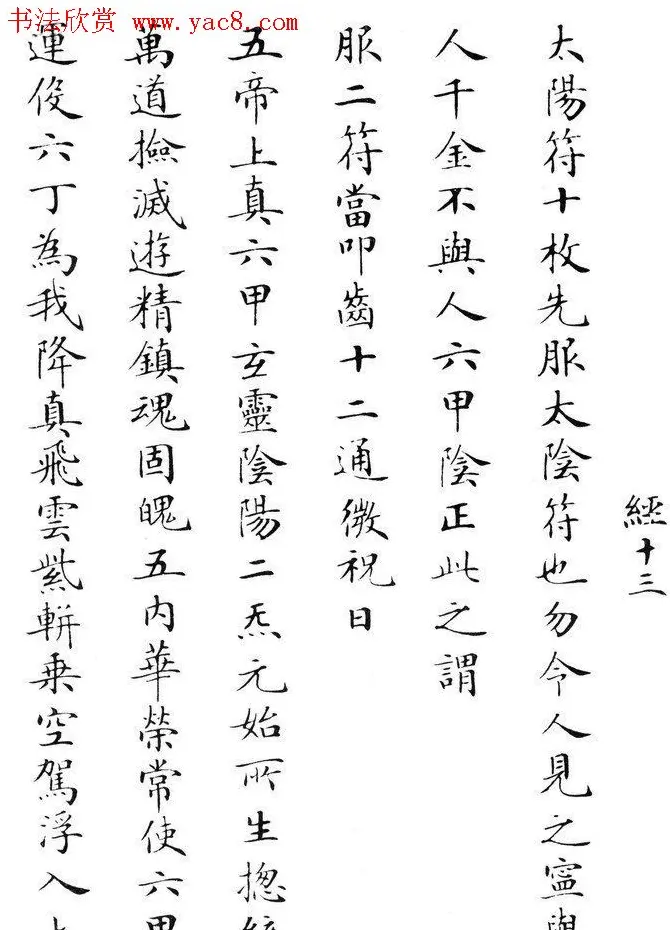 书法欣赏
www.yac8.com
經十三
太陽符十枚先服太陰符也勿令人見之寍與
人千金不與人六甲陰正此之謂
服二符當叩齒十二通微祝曰
五帝上真六甲玄靈陰陽二炁元始所生揔統
萬道撿滅遊精鎮魂固魄五內華榮常使六甲
運役六丁為我降真飛雲紫軿乗空駕浮入